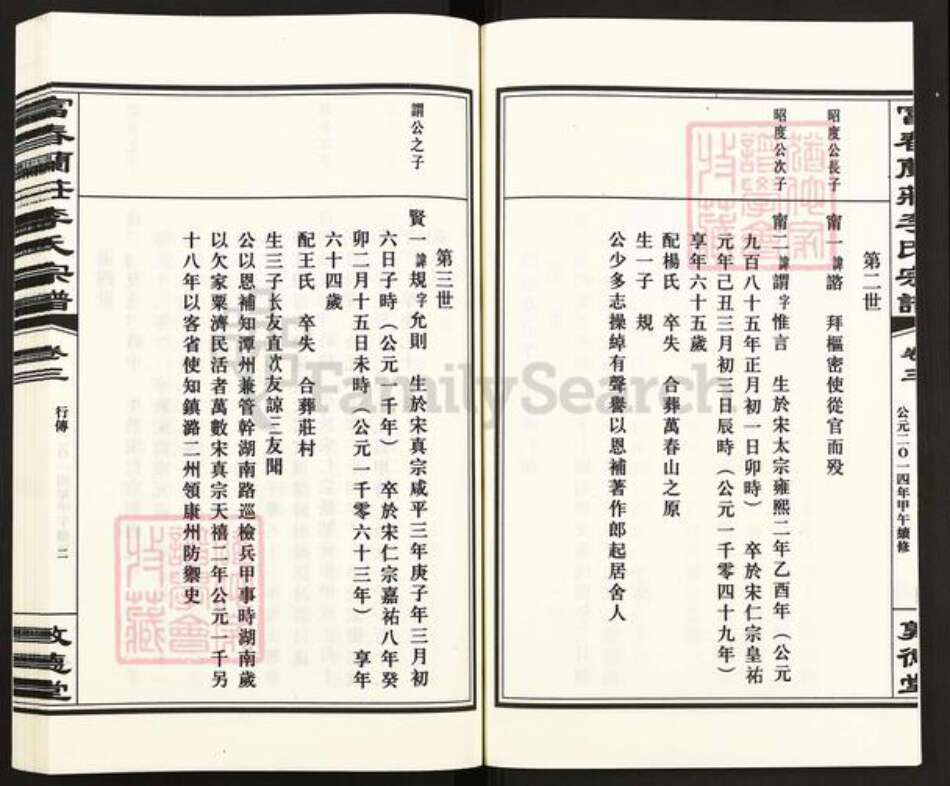 富春蘭莊李氏宗譜
卷三
公元二〇一四年甲午續修
敦德堂
第二世
昭度公長子
甯一諱諮 拜樞密使從官而歿
昭度公次子
甯二諱謂字惟言 生於宋太宗雍熙二年乙酉年（公元
九百八十五年正月初一日卯時） 卒於宋仁宗皇祐
元年己丑三月初三日辰時（公元一千零四十九年）
享年六十五歲
配楊氏 卒失 合葬萬春山之原
生一子 規
公少多志操綽有聲譽以恩補著作郎起居舍人
第三世
謂公之子
賢一諱規字允則 生於宋真宗咸平三年庚子年三月初
六日子時（公元一千年） 卒於宋仁宗嘉祐八年癸
卯二月十五日未時（公元一千零六十三年）享年
六十四歲
配王氏 卒失 合葬莊村
生三子長友直次友諒三友聞
公以恩補知潭州兼管幹湖南路巡檢兵甲事時湖南歲
以欠家粟濟民活者萬數宋真宗天禧二年公元一千另
十八年以客省使知鎮潞二州領康州防禦史
富春蘭莊李氏宗譜
卷三
行傳
二
敦德堂
FamilySearch